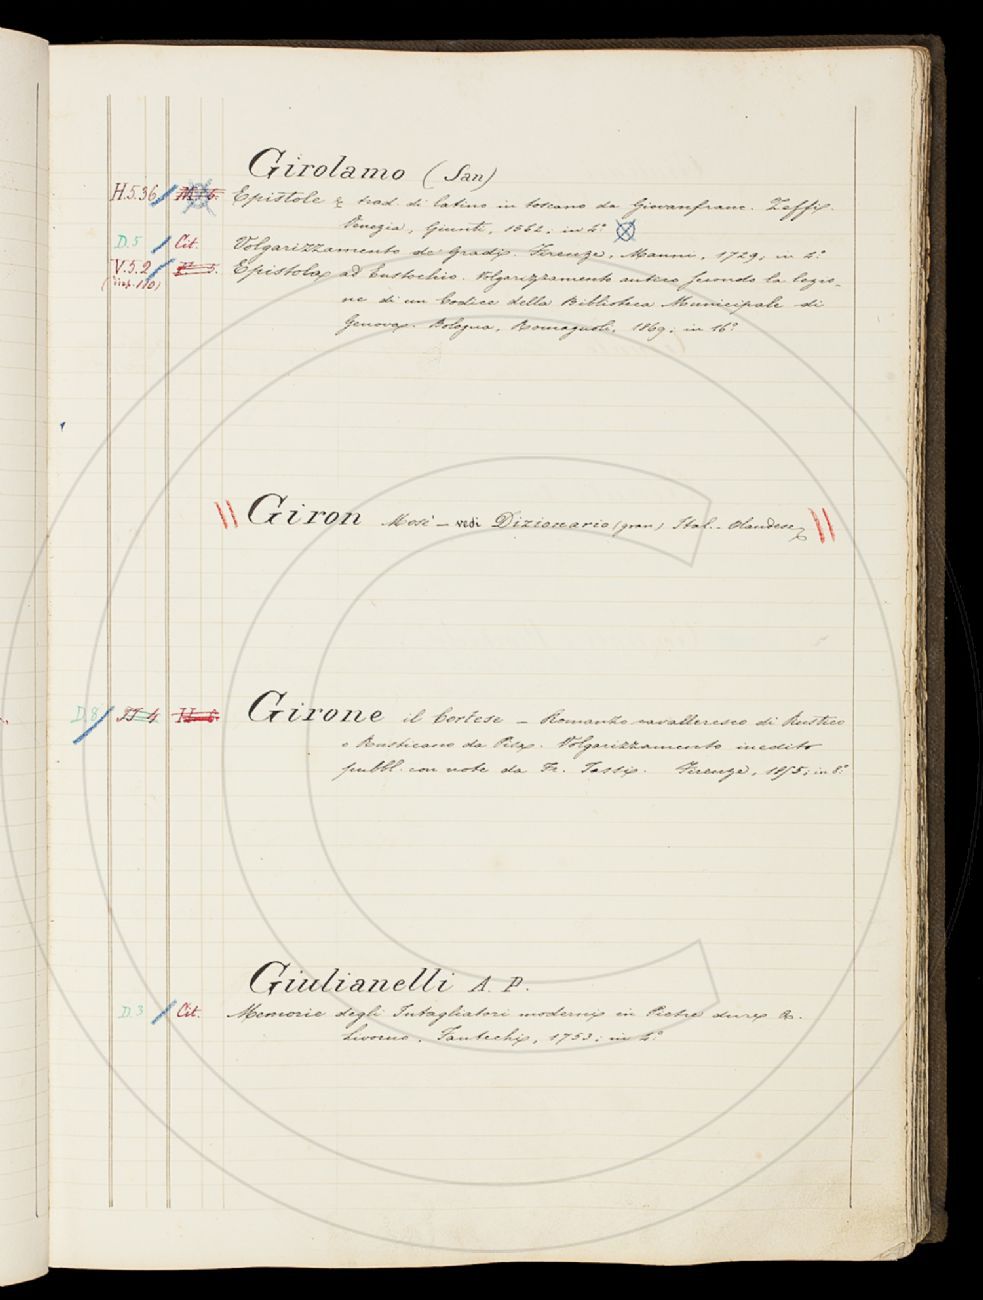 Girolamo (San)
H.5.36 Epistole & trad. di latino in toscano da Giovanfranc. Zeffi.
Venezia, Giunti, 1562; in 4.°
D.5 Cit. Volgarizzamento de' Gradi. Firenze, Manni, 1729; in 4.°
V.5.2 Epistola ad Eustochio. Volgarizzamento antico secondo la lezio-
(disp. 110)
ne di un Codice della Biblioteca Municipale di
Genova. Bologna, Romagnoli, 1869; in 16.°
Giron Mosè — vedi Dizionario (gran) Ital.-Olandese
D.8 Girone il Cortese — Romanzo cavalleresco di Rustico
o Rusticano da Pisa. Volgarizzamento inedito
pubbl. con note da Fr. Tassi. Firenze, 1855; in 8.°
Giulianelli A. P.
D.3 Cit. Memorie degli Intagliatori moderni in Pietre dure &.
Livorno, Fantechi, 1753; in 4.°